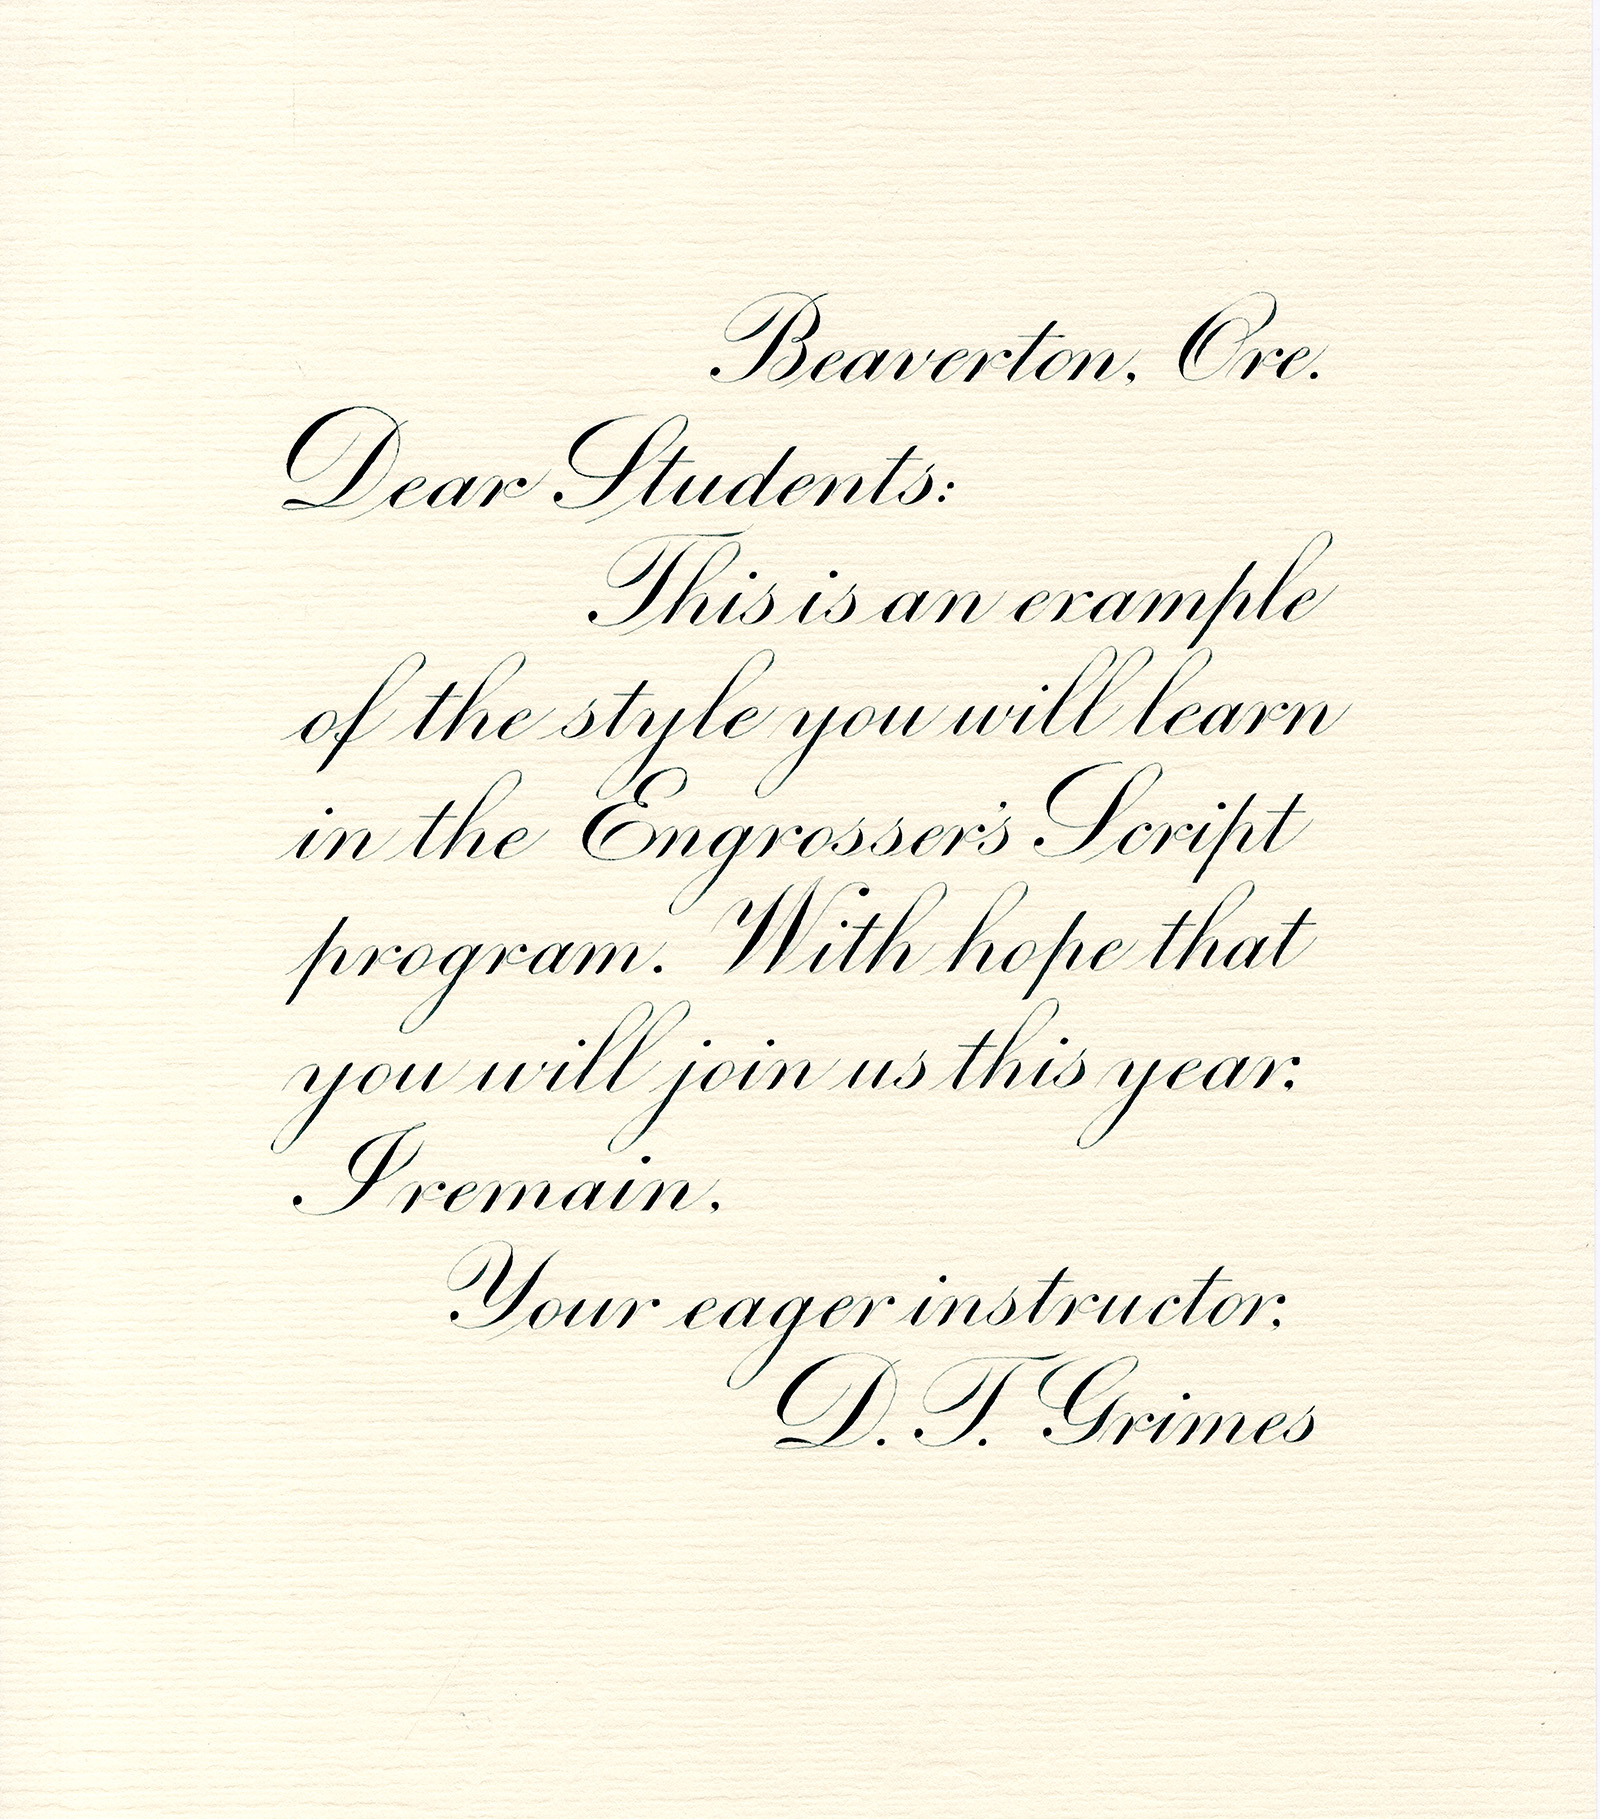 Beaverton, Ore.
Dear Students:
This is an example
of the style you will learn
in the Engrosser's Script
program. With hope that
you will join us this year,
I remain,
Your eager instructor,
D. T. Grimes